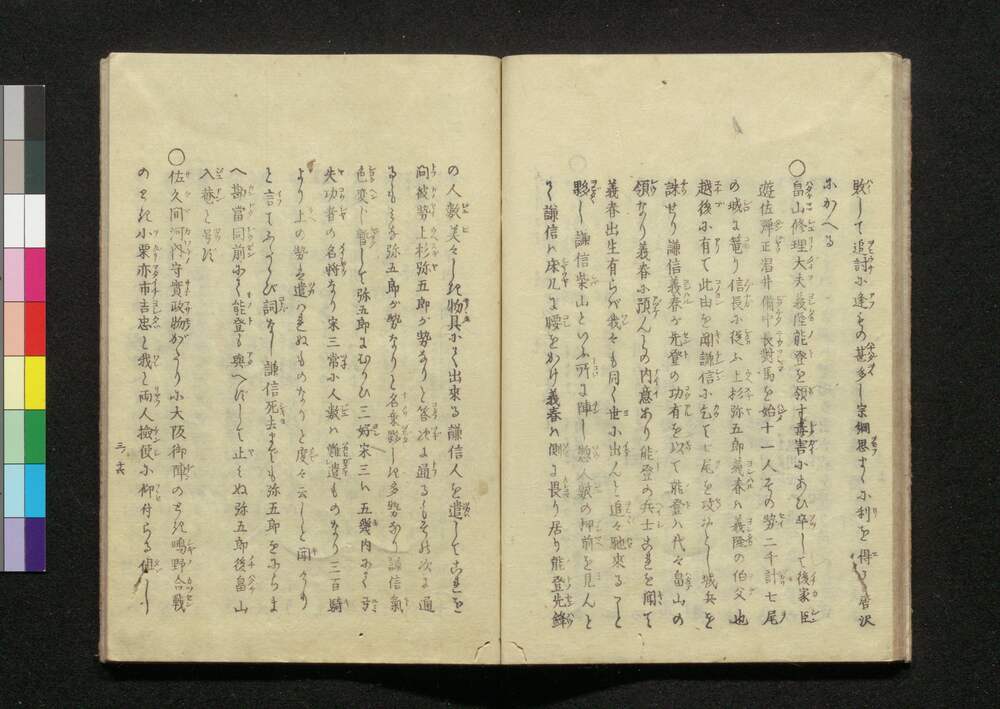 敗して追討に逢もの甚多し宗綱思まゝに利を得て唐沢
にかへる
○畠山修理大夫義隆能登を領す毒害にあひ卒して後家臣
遊佐弾正温井備中長對馬を始十一人その勢二千計七尾
の城に篭り信長に従ふ上杉弥五郎義春ハ義隆の伯父也
越後に有て此由を聞謙信に乞て七尾を攻おとし城兵を
誅せり謙信義春が先登の功有を以て能登ハ代々畠山の
領なり義春に預んの内意あり能登の兵士是を聞て
義春出生有らバ我々も同く世に出んと追々馳来ること
夥し謙信柴山といふ所に陣し惣人数の押前を見んと
て謙信ハ床几に腰をかけ義春ハ側に畏り居り能登先鋒
の人数美々しき物具にて出来る謙信人を遣してこれを
問彼勢上杉弥五郎が勢なりと答次に通るもその次に通
るもみな弥五郎が勢なりと名乗夥しき多勢なり謙信氣
色変じ暫して弥五郎にむかひ三好宋三ハ五幾内にて
失功者の名将なり宋三常に人数ハ難遣ものなり三百騎
より上の勢ハ遣ハれぬものなりと度々云しと聞より
と言てふたゝび詞なし謙信死去までも弥五郎をにらま
へ勘當同前にて能登も與へずして止ミぬ弥五郎後畠山
入菴と号す
○佐久間河内守實政物がたりに大阪御陣のとき鴫野合戦
のとき小栗亦市吉忠と我と両人検使に仰付らる但し
三ノ六